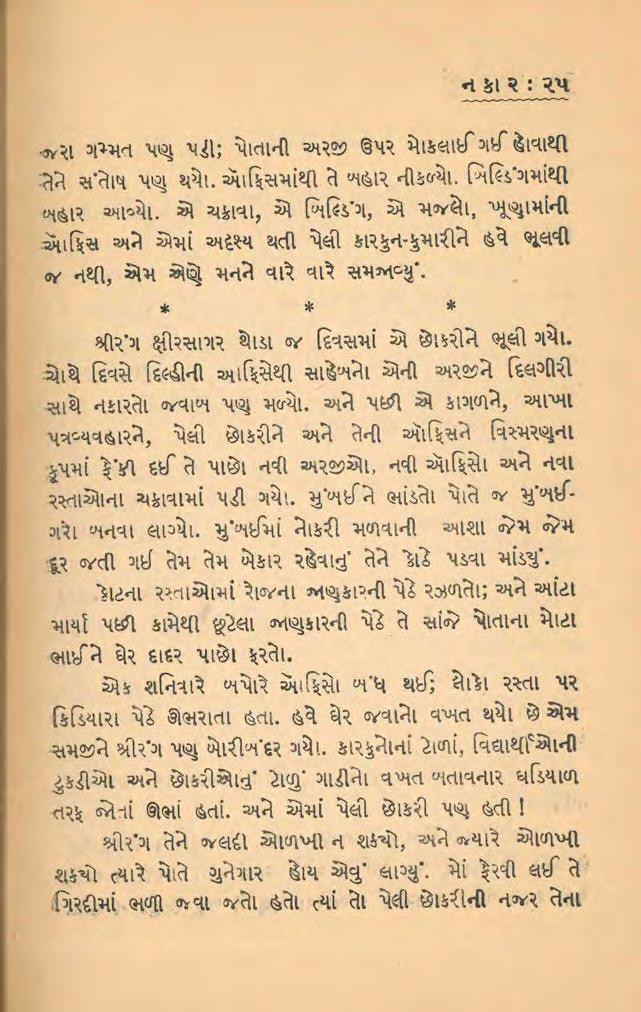 નકાર : ૨૫
જરા ગમ્મત પણ પડી; પોતાની અરજી ઉપર મોકલાઈ ગઈ હોવાથી
તેને સંતોષ પણ થયો. ઑફિસમાંથી તે બહાર નીકળ્યો. બિલ્ડિંગમાંથી
બહાર આવ્યો. એ ચક્રાવા, એ બિલ્ડિંગ, એ મજલો, ખૂણામાંની
ઑફિસ અને એમાં અદૃશ્ય થતી પેલી કારકુન-કુમારીને હવે ભૂલવી
જ નથી, એમ એણે મનને વારે વારે સમજાવ્યું.
* * *
શ્રીરંગ ક્ષીરસાગર થોડા જ દિવસમાં એ છોકરીને ભૂલી ગયો.
ચોથે દિવસે દિલ્હીની આફિસેથી સાહેબનો એની અરજીને દિલગીરી
સાથે નકારતો જવાબ પણ મળ્યો. અને પછી એ કાગળને, આખા
પત્રવ્યવહારને, પેલી છોકરીને અને તેની ઑફિસને વિસ્મરણના
કૂપમાં ફેંકી દઈ તે પાછો નવી અરજીઓ, નવી ઑફિસો અને નવા
રસ્તાઓના ચક્રાવામાં પડી ગયો. મુંબઈને ભાંડતો પોતે જ મુંબઈ-
ગરો બનવા લાગ્યો. મુંબઈમાં નોકરી મળવાની આશા જેમ જેમ
દૂર જતી ગઈ તેમ તેમ બેકાર રહેવાનું તેને કોઠે પડવા માંડ્યું.
કોટના રસ્તાઓમાં રોજના જાણકારની પેઠે રઝળતો; અને આંટા
માર્યા પછી કામેથી છૂટેલા જાણકારની પેઠે તે સાંજે પોતાના મોટા
ભાઈને ઘેર દાદર પાછો ફરતો.
એક શનિવારે બપોરે ઑફિસો બંધ થઈ; લોકો રસ્તા પર
કિડિયારા પેઠે ઊભરાતા હતા. હવે ઘેર જવાનો વખત થયો છે એમ
સમજીને શ્રીરંગ પણ બોરીબંદર ગયો. કારકુનોનાં ટોળાં, વિદ્યાર્થીઓની
ટુકડીઓ અને છોકરીઓનું ટોળું ગાડીનો વખત બતાવનાર ઘડિયાળ
તરફ જોતાં ઊભાં હતાં. અને એમાં પેલી છોકરી પણ હતી !
શ્રીરંગ તેને જલદી ઓળખી ન શક્યો, અને જ્યારે ઓળખી
શક્યો ત્યારે પોતે ગુનેગાર હોય એવું લાગ્યું. મોં ફેરવી લઈ તે
ગિરદીમાં ભળી જવા જતો હતો ત્યાં તો પેલી છોકરીની નજર તેના